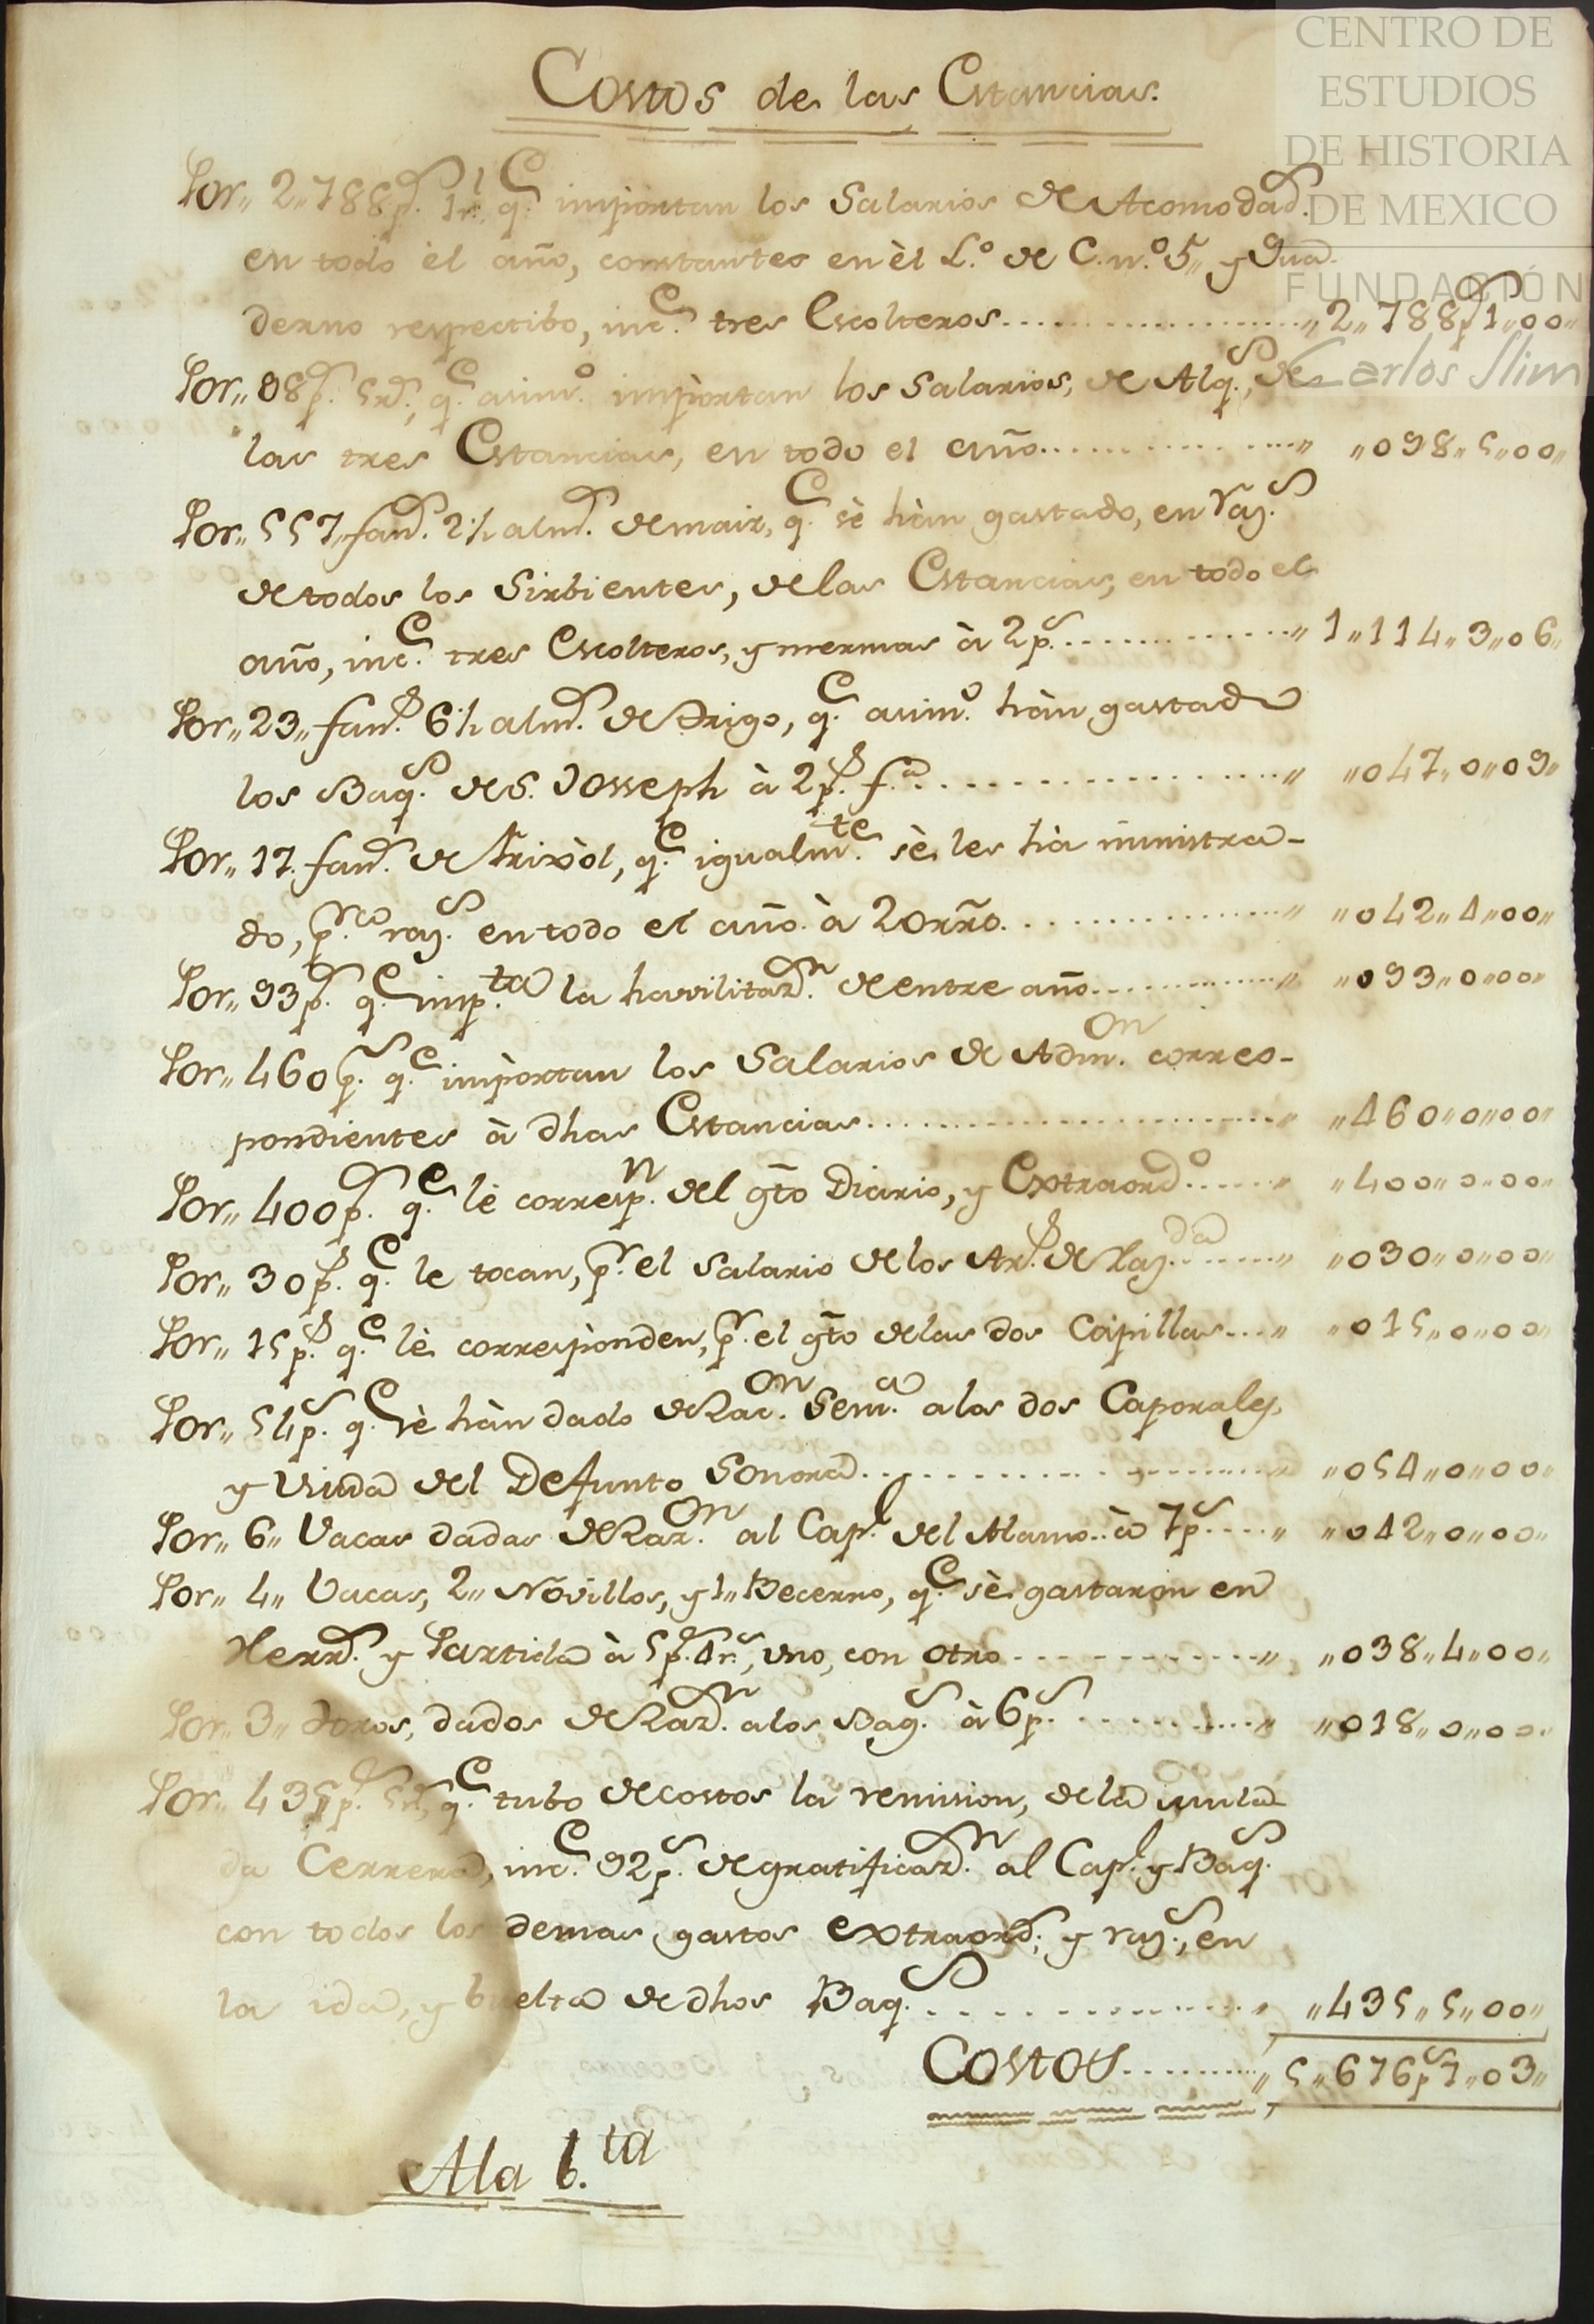 Costos de las Estancias.
Por,, 2,,788p.s 1r.l q.e importan los Salarios de Acomodad.s
en todo èl año, constantes en èl L.o de C. n.o 5,, y Qua-
derno respectibo, inc.e tres Escolteros...................,, 2,,788p.s1,,00,,
Por,, 98p.s 5r.s, q.e asim.o impòrtan los Salarios, de Alq.s, de
las tres Estancias, en todo el año...................,, ,,098,,5,,00,,
Por,, 557,, fan.s 2½ alm.s de maiz, q.e sè hàn gastado, en Raz.s
de todos los Sirbientes, de las Estancias, en todo el
año, inc.e tres Escolteros, y mermas à 2p.s..............,, 1,,114,,3,,06,,
Por,, 23,, fan.s 6½ alm.s de Trigo, q.e asim.o hàn gastado
los Baq.s de S. Josseph à 2p.s f.a...................,, ,,047,,0,,09,,
Por,, 17. fan.s de Frixòl, q.e igualm.te sè les hà ministra-
do, p.r sus raz.s en todo el año à 20rr.o..............,, ,,042,,4,,00,,
Por,, 93p.s q.e imp.ta la havilitaz.n de entre año..............,, ,,093,,0,,00,,
Por,, 460p.s q.e impòrtan los Salarios de Adm.on corres-
pondientes à dhas Estancias.......................,, ,,460,,0,,00,,
Por,, 400p.s q.e lè corresp.n del gto Diario, y Extraord.o......,, ,,400,,0,,00,,
Por,, 30p.s q.e le tocan, p.r el Salario de los Ar.s de Raz.da........,, ,,030,,0,,00,,
Por,, 15p.s q.e lè corresponden, p.r el gto de las dos Capillas....,, ,,015,,0,,00,,
Por,, 54p.s q.e sè hàn dado de Rac.on Sem.a a los dos Caporales,
y Viuda del Defunto Sonora.......................,, ,,054,,0,,00,,
Por,, 6,, Vacas dadas de Raz.on al Cap.l del Alamo..à 7p.s.....,, ,,042,,0,,00,,
Por,, 4,, Vacas, 2,, Novillos, y 1,, Becerro, q.e sè gastaron en
Herr.s y Partida à 5p.s4r.s, uno, con otro..............,, ,,038,,4,,00,,
Por,, 3,, Toros, dados de Raz.n a los Baq.s à 6p.s............,, ,,018,,0,,00,,
Por,, 435p.s 5r.s, q.e tubo de costos la remision, de la mula-
da Cerrera, inc.e 92p.s de gratificaz.n al Cap.l y Baq.s
con todos los demas gastos extraord.s y raz.s, en
la ida, y buelta de dhos Baq.s...................,, ,,435,,5,,00,,
Costos..........,, 5,,676p.s7,,03,,
A la b.ta
CENTRO DE
ESTUDIOS
DE HISTORIA
DE MEXICO
FUNDACIÓN
Carlos Slim